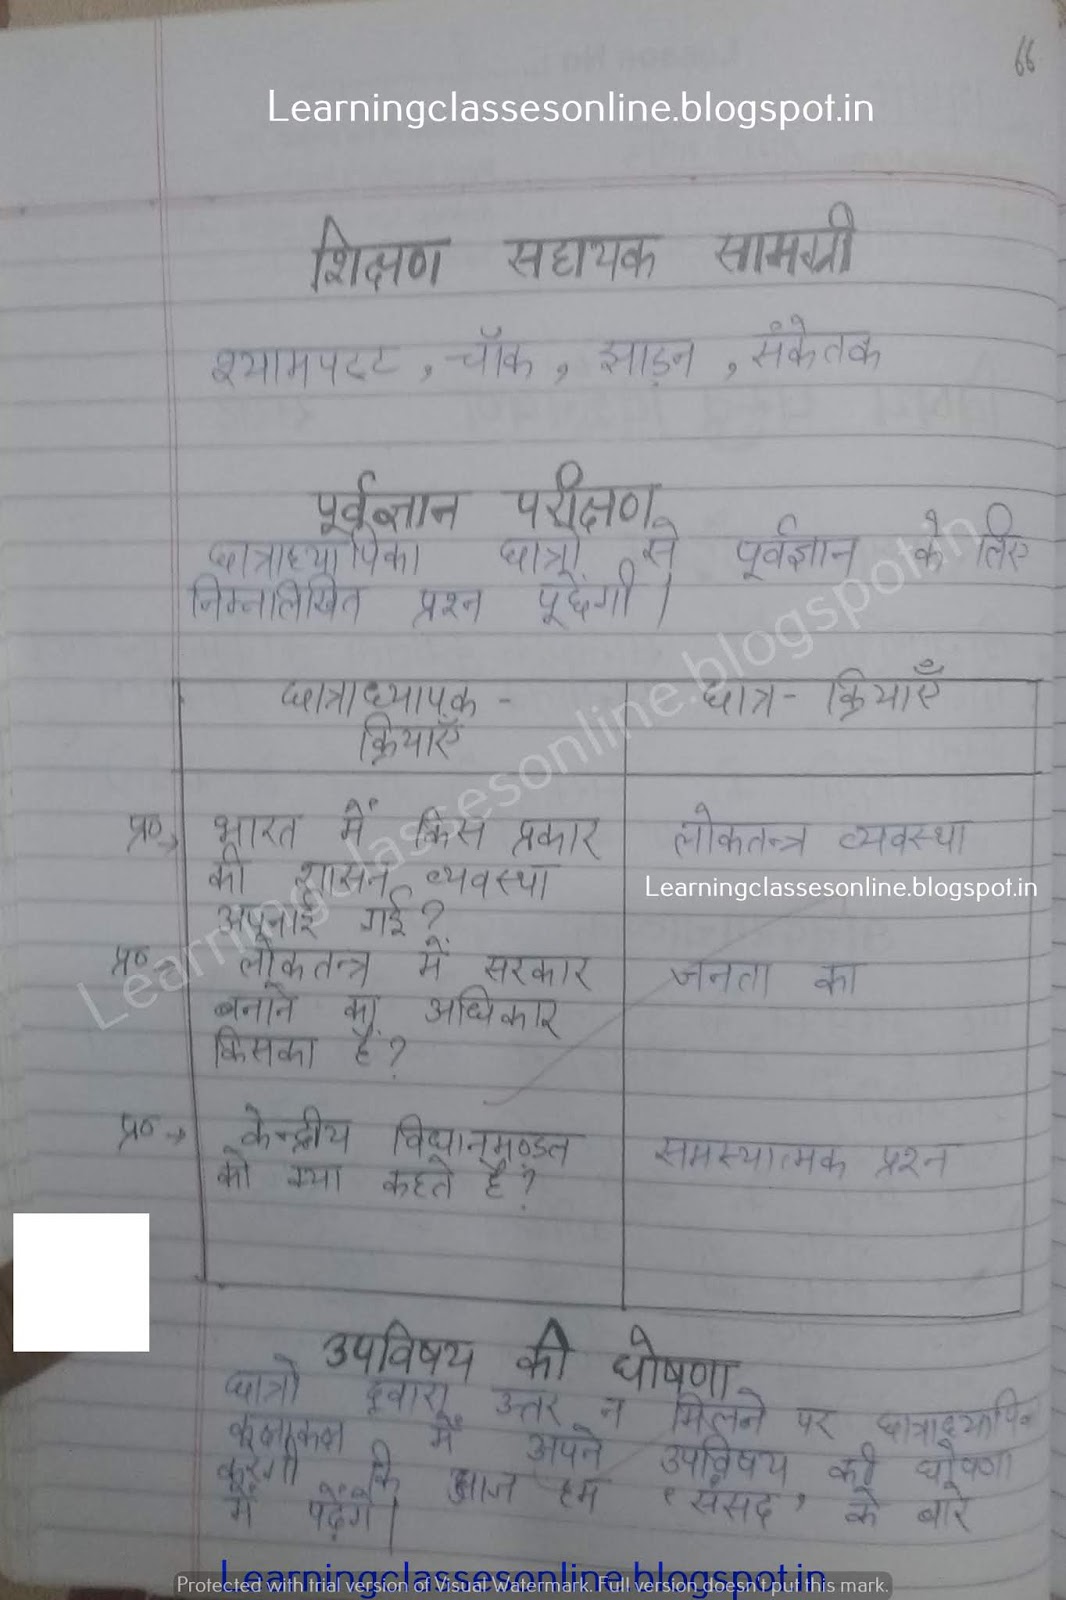 66
Learningclassesonline.blogspot.in
शिक्षण सहायक सामग्री
श्यामपट्ट , चॉक , झाड़न , संकेतक
पूर्वज्ञान परीक्षण
छात्राध्यापिका छात्रों से पूर्वज्ञान के लिए
निम्नलिखित प्रश्न पूछेंगी।
छात्राध्यापक - छात्र - क्रियाएँ
क्रियाएँ
प्र० → भारत में किस प्रकार लोकतन्त्र व्यवस्था
की शासन व्यवस्था
Learningclassesonline.blogspot.in
अपनाई गई?
प्र० → लोकतन्त्र में सरकार जनता का
बनाने का अधिकार
किसका है?
प्र० → केन्द्रीय विधानमण्डल समस्यात्मक प्रश्न
को क्या कहते है?
Learningclassesonline.blogspot.in
उपविषय की घोषणा
छात्रो द्वारा उत्तर न मिलने पर छात्राध्यापि
में अपने उपविषय की घोषणा
करेंगी कि आज हम 'संसद' के बारे
में पढ़ेंगे।
Learningclassesonline.blogspot.in
Protected with trial version of Visual Watermark. Full version doesn't put this mark.